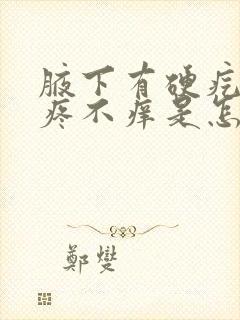 腋下有硬疙
疼不痒是怎
鄭燮